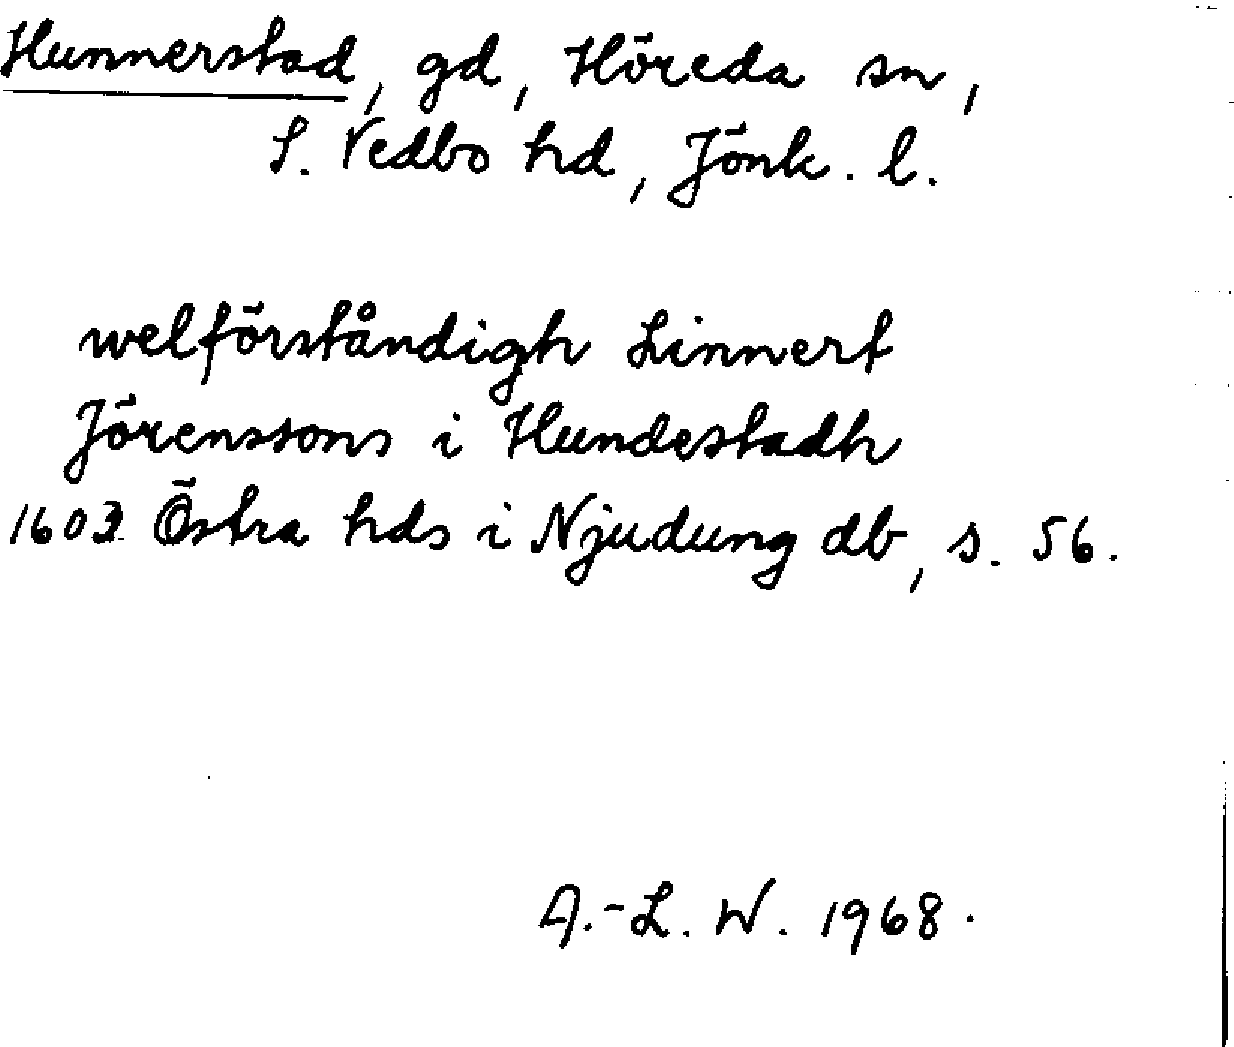 Hunnerstad, gd, Höreda sn,
S. Vedbo hd, Jönk. l.
welförståndigh Linnert
Jörenssons i Hundestadh
1603 Östra hds i Njudung db, s. 56.
A.-L. W. 1968.